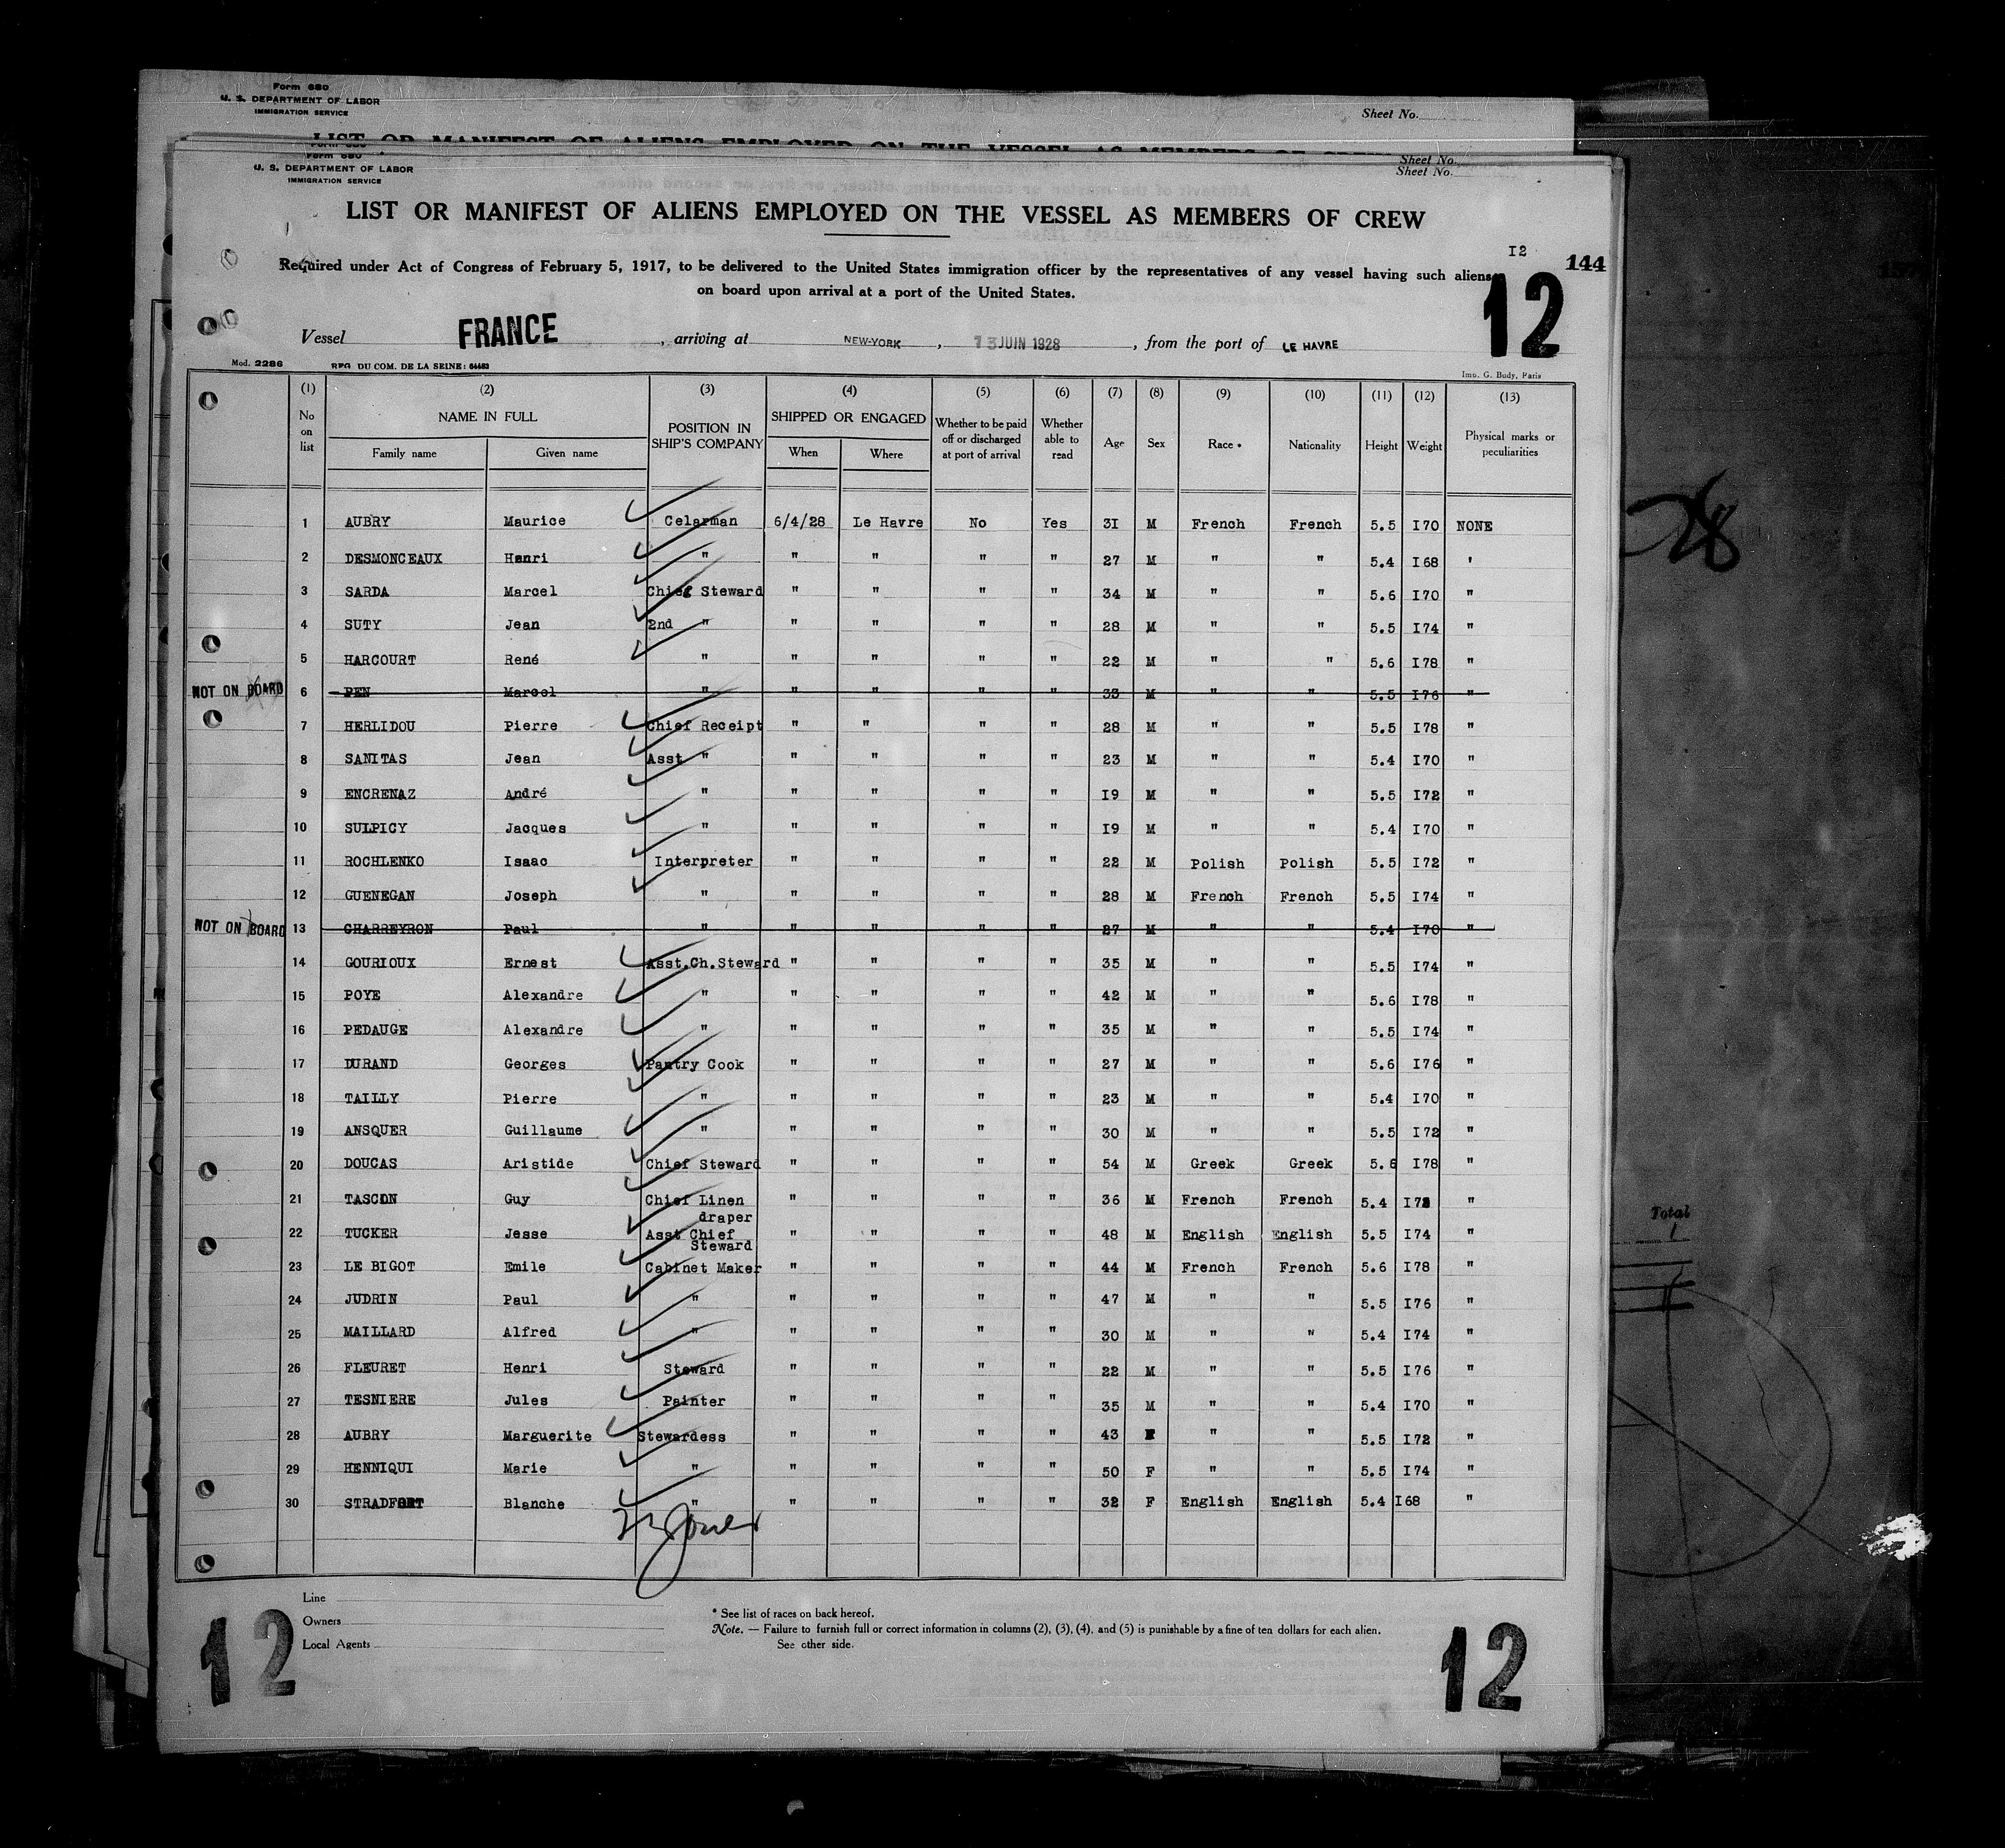 Form 680
U. S. DEPARTMENT OF LABOR
IMMIGRATION SERVICE
Sheet No.
LIST OR MANIFEST OF ALIENS EMPLOYED ON THE VESSEL AS MEMBERS OF
Form 680
U. S. DEPARTMENT OF LABOR
IMMIGRATION SERVICE
Sheet No.
Sheet No.
LIST OR MANIFEST OF ALIENS EMPLOYED ON THE VESSEL AS MEMBERS OF CREW
I2 144
Required under Act of Congress of February 5, 1917, to be delivered to the United States immigration officer by the representatives of any vessel having such aliens
on board upon arrival at a port of the United States.
12
Vessel FRANCE, arriving at NEW-YORK, 13 JUIN 1928, from the port of LE HAVRE
Mod. 2286 REG. DU COM. DE LA SEINE: 64483 Imp. G. Budy, Paris
(1) (2) (3) (4) (5) (6) (7) (8) (9) (10) (11) (12) (13)
No on list NAME IN FULL Family name Given name POSITION IN SHIP'S COMPANY SHIPPED OR ENGAGED When Where Whether to be paid off or discharged at port of arrival Whether able to read Age Sex Race * Nationality Height Weight Physical marks or peculiarities
1 AUBRY Maurice Celarman 6/4/28 Le Havre No Yes 3I M French French 5.5 I70 NONE
2 DESMONCEAUX Henri " " " " " 27 M " " 5.4 I68 '
3 SARDA Marcel Chief Steward " " " " 34 M " " 5.6 I70 "
4 SUTY Jean 2nd " " " " " 28 M " " 5.5 I74 "
5 HARCOURT René " " " " " 22 M " " 5.6 I78 "
NOT ON BOARD 6 PEN Marcel " " " " " 33 M " " 5.5 I76 "
7 HERLIDOU Pierre Chief Receipt " " " " 28 M " " 5.5 I78 "
8 SANITAS Jean Asst " " " " " 23 M " " 5.4 I70 "
9 ENCRENAZ André " " " " " I9 M " " 5.5 I72 "
10 SULPICY Jacques " " " " " I9 M " " 5.4 I70 "
11 ROCHLENKO Isaac Interpreter " " " " 22 M Polish Polish 5.5 I72 "
12 GUENEGAN Joseph " " " " " 28 M French French 5.5 I74 "
NOT ON BOARD 13 CHARREYRON Paul " " " " " 27 M " " 5.4 I70 "
14 GOURIOUX Ernest Asst.Ch.Steward " " " " 35 M " " 5.5 I74 "
15 POYE Alexandre " " " " " 42 M " " 5.6 I78 "
16 PEDAUGE Alexandre " " " " " 35 M " " 5.5 I74 "
17 DURAND Georges Pantry Cook " " " " 27 M " " 5.6 I76 "
18 TAILLY Pierre " " " " " 23 M " " 5.4 I70 "
19 ANSQUER Guillaume " " " " " 30 M " " 5.5 I72 "
20 DOUCAS Aristide Chief Steward " " " " 54 M Greek Greek 5.6 I78 "
21 TASCON Guy Chief Linen draper " " " " 36 M French French 5.4 I72 "
22 TUCKER Jesse Asst Chief Steward " " " " 48 M English English 5.5 I74 "
23 LE BIGOT Emile Cabinet Maker " " " " 44 M French French 5.6 I78 "
24 JUDRIN Paul " " " " " 47 M " " 5.5 I76 "
25 MAILLARD Alfred " " " " " 30 M " " 5.4 I74 "
26 FLEURET Henri Steward " " " " 22 M " " 5.5 I76 "
27 TESNIERE Jules Painter " " " " 35 M " " 5.4 I70 "
28 AUBRY Marguerite Stewardess " " " " 43 F " " 5.5 I72 "
29 HENNIQUI Marie " " " " " 50 F " " 5.5 I74 "
30 STRADFORT Blanche " " " " " 32 F English English 5.4 I68 "
Line
Owners
Local Agents
* See list of races on back hereof.
Note. — Failure to furnish full or correct information in columns (2), (3), (4), and (5) is punishable by a fine of ten dollars for each alien.
See other side.
12
12
28
Total
1